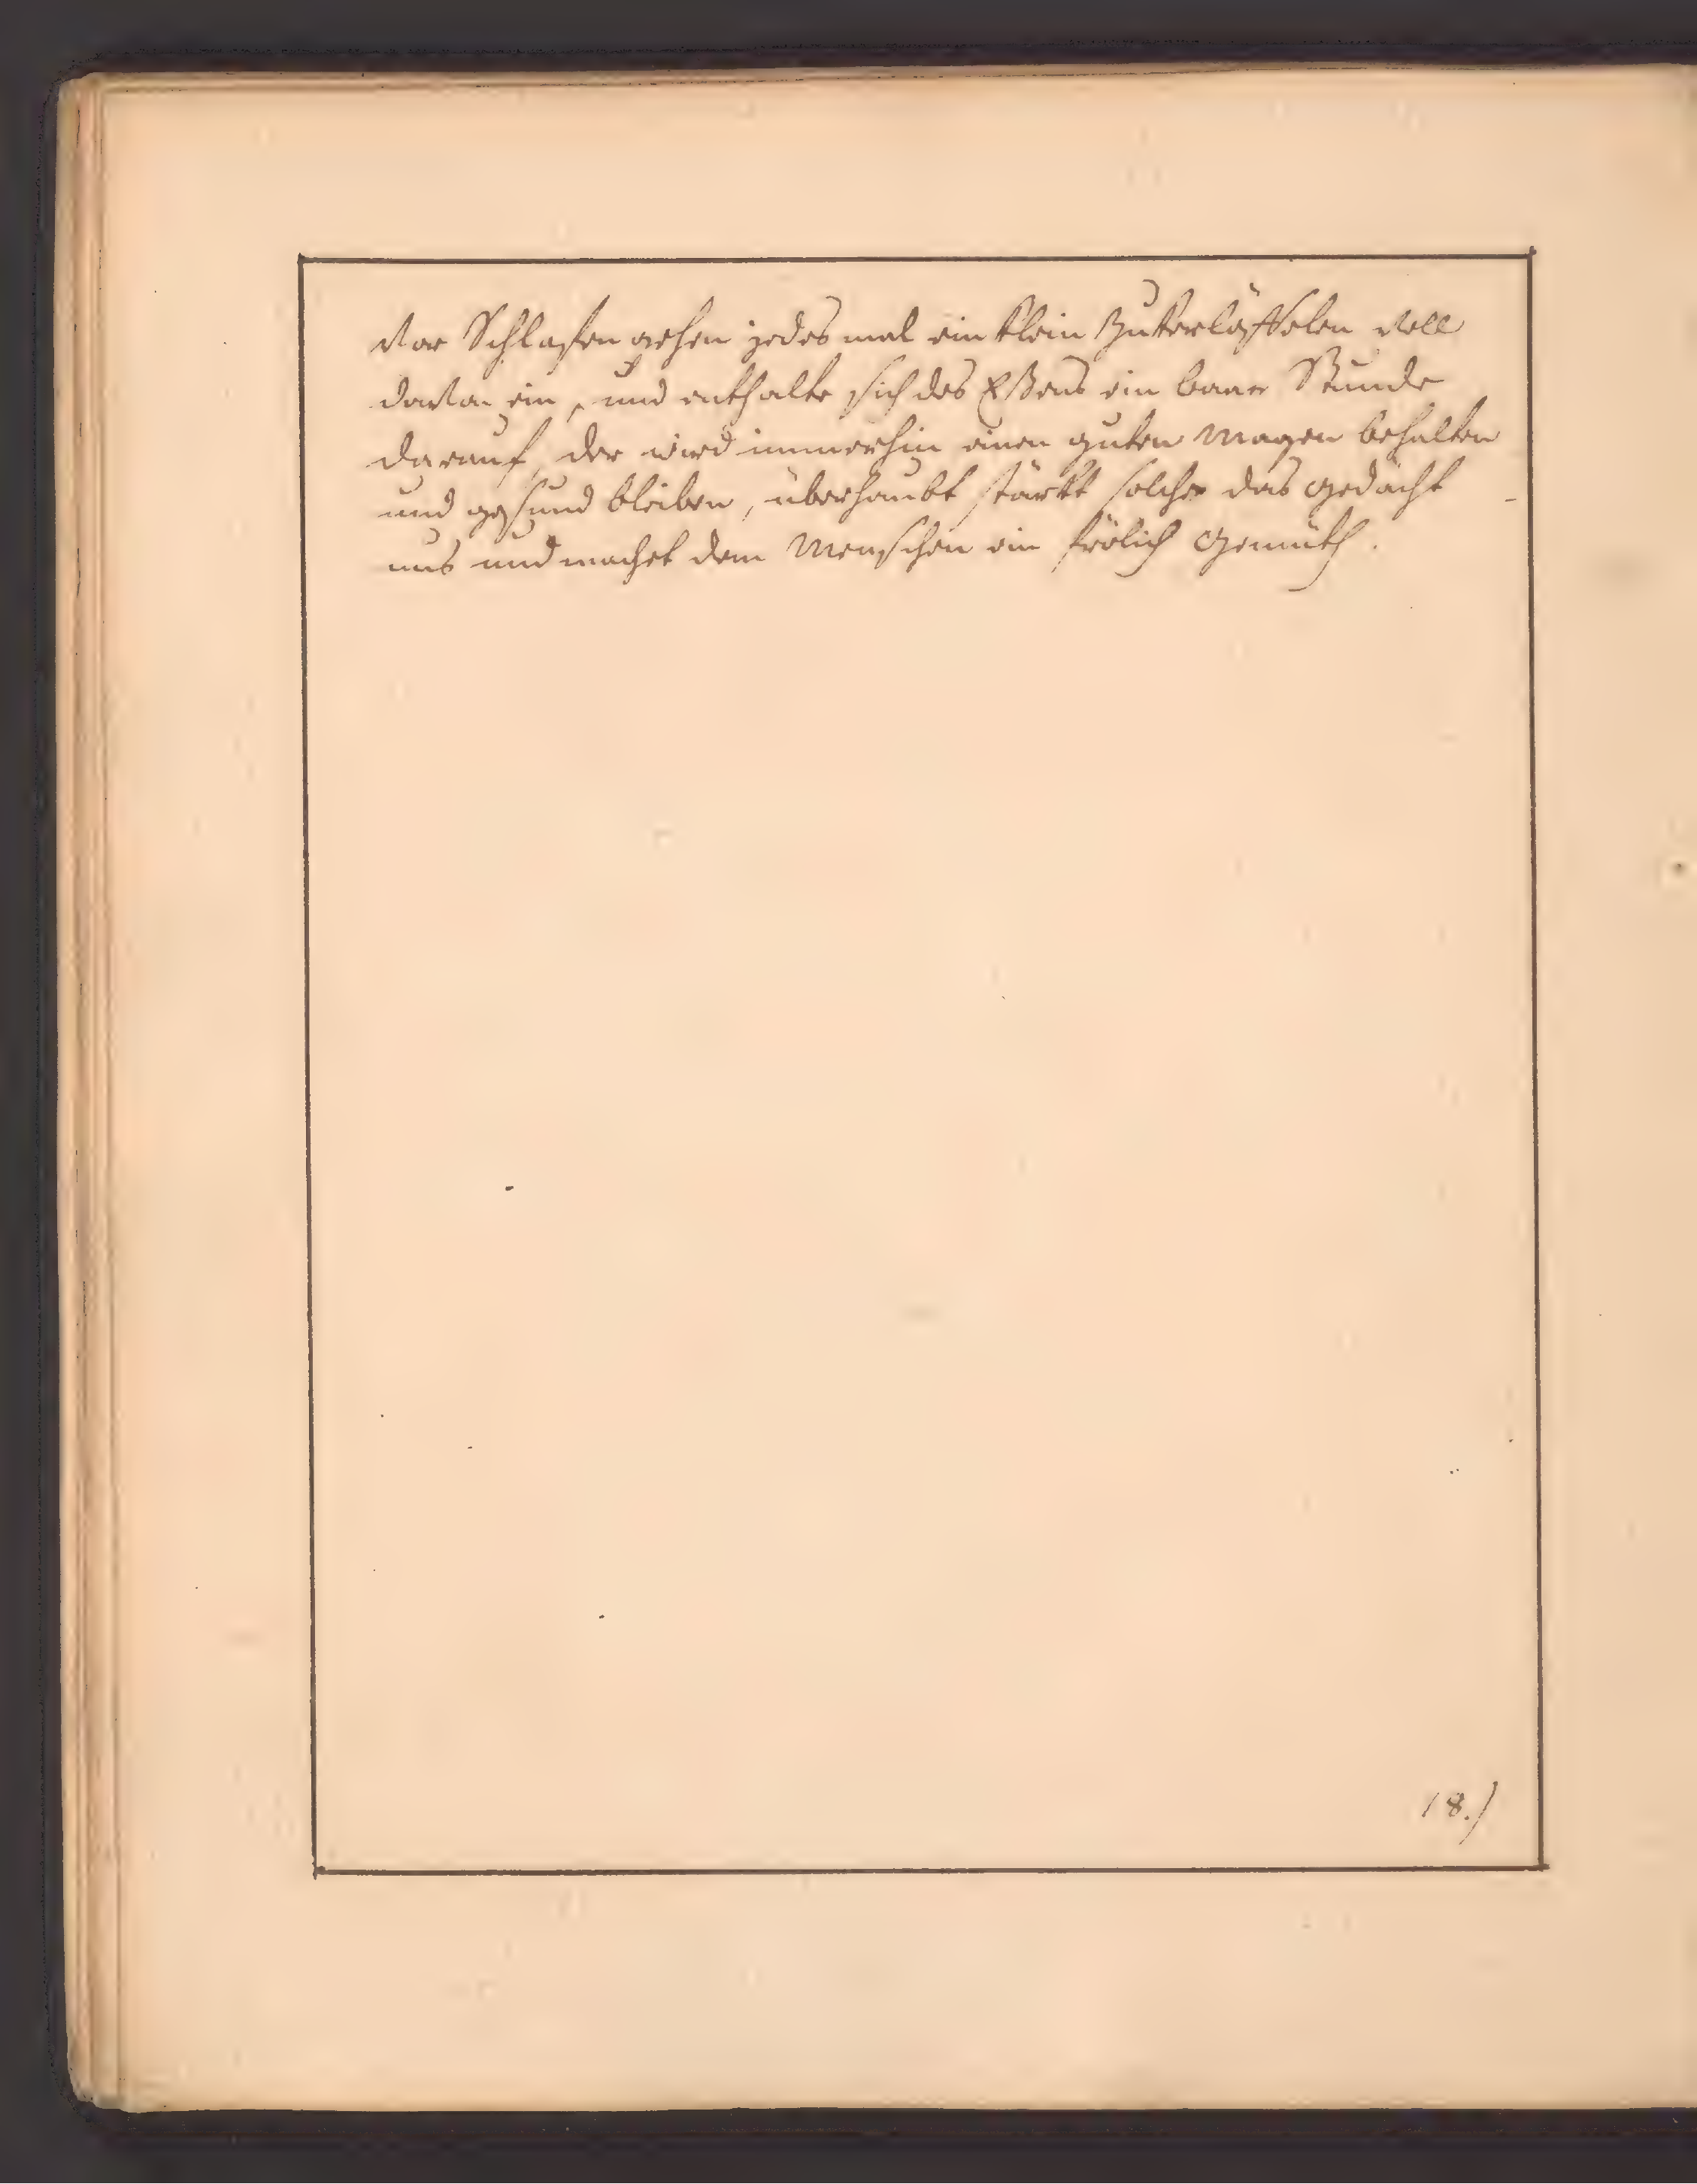 vor Schlafen gehen jedes mal ein klein Zukerlöffelen voll
davon ein, und enthalte sich des Eßens ein baar Stunde
darauf, der wird immerhin einen guten Magen behalten
und gesund bleiben, überhaubt stärkt solches das Gedächt-
nus und machet dem Menschen ein frölich Gemüth.
18.)